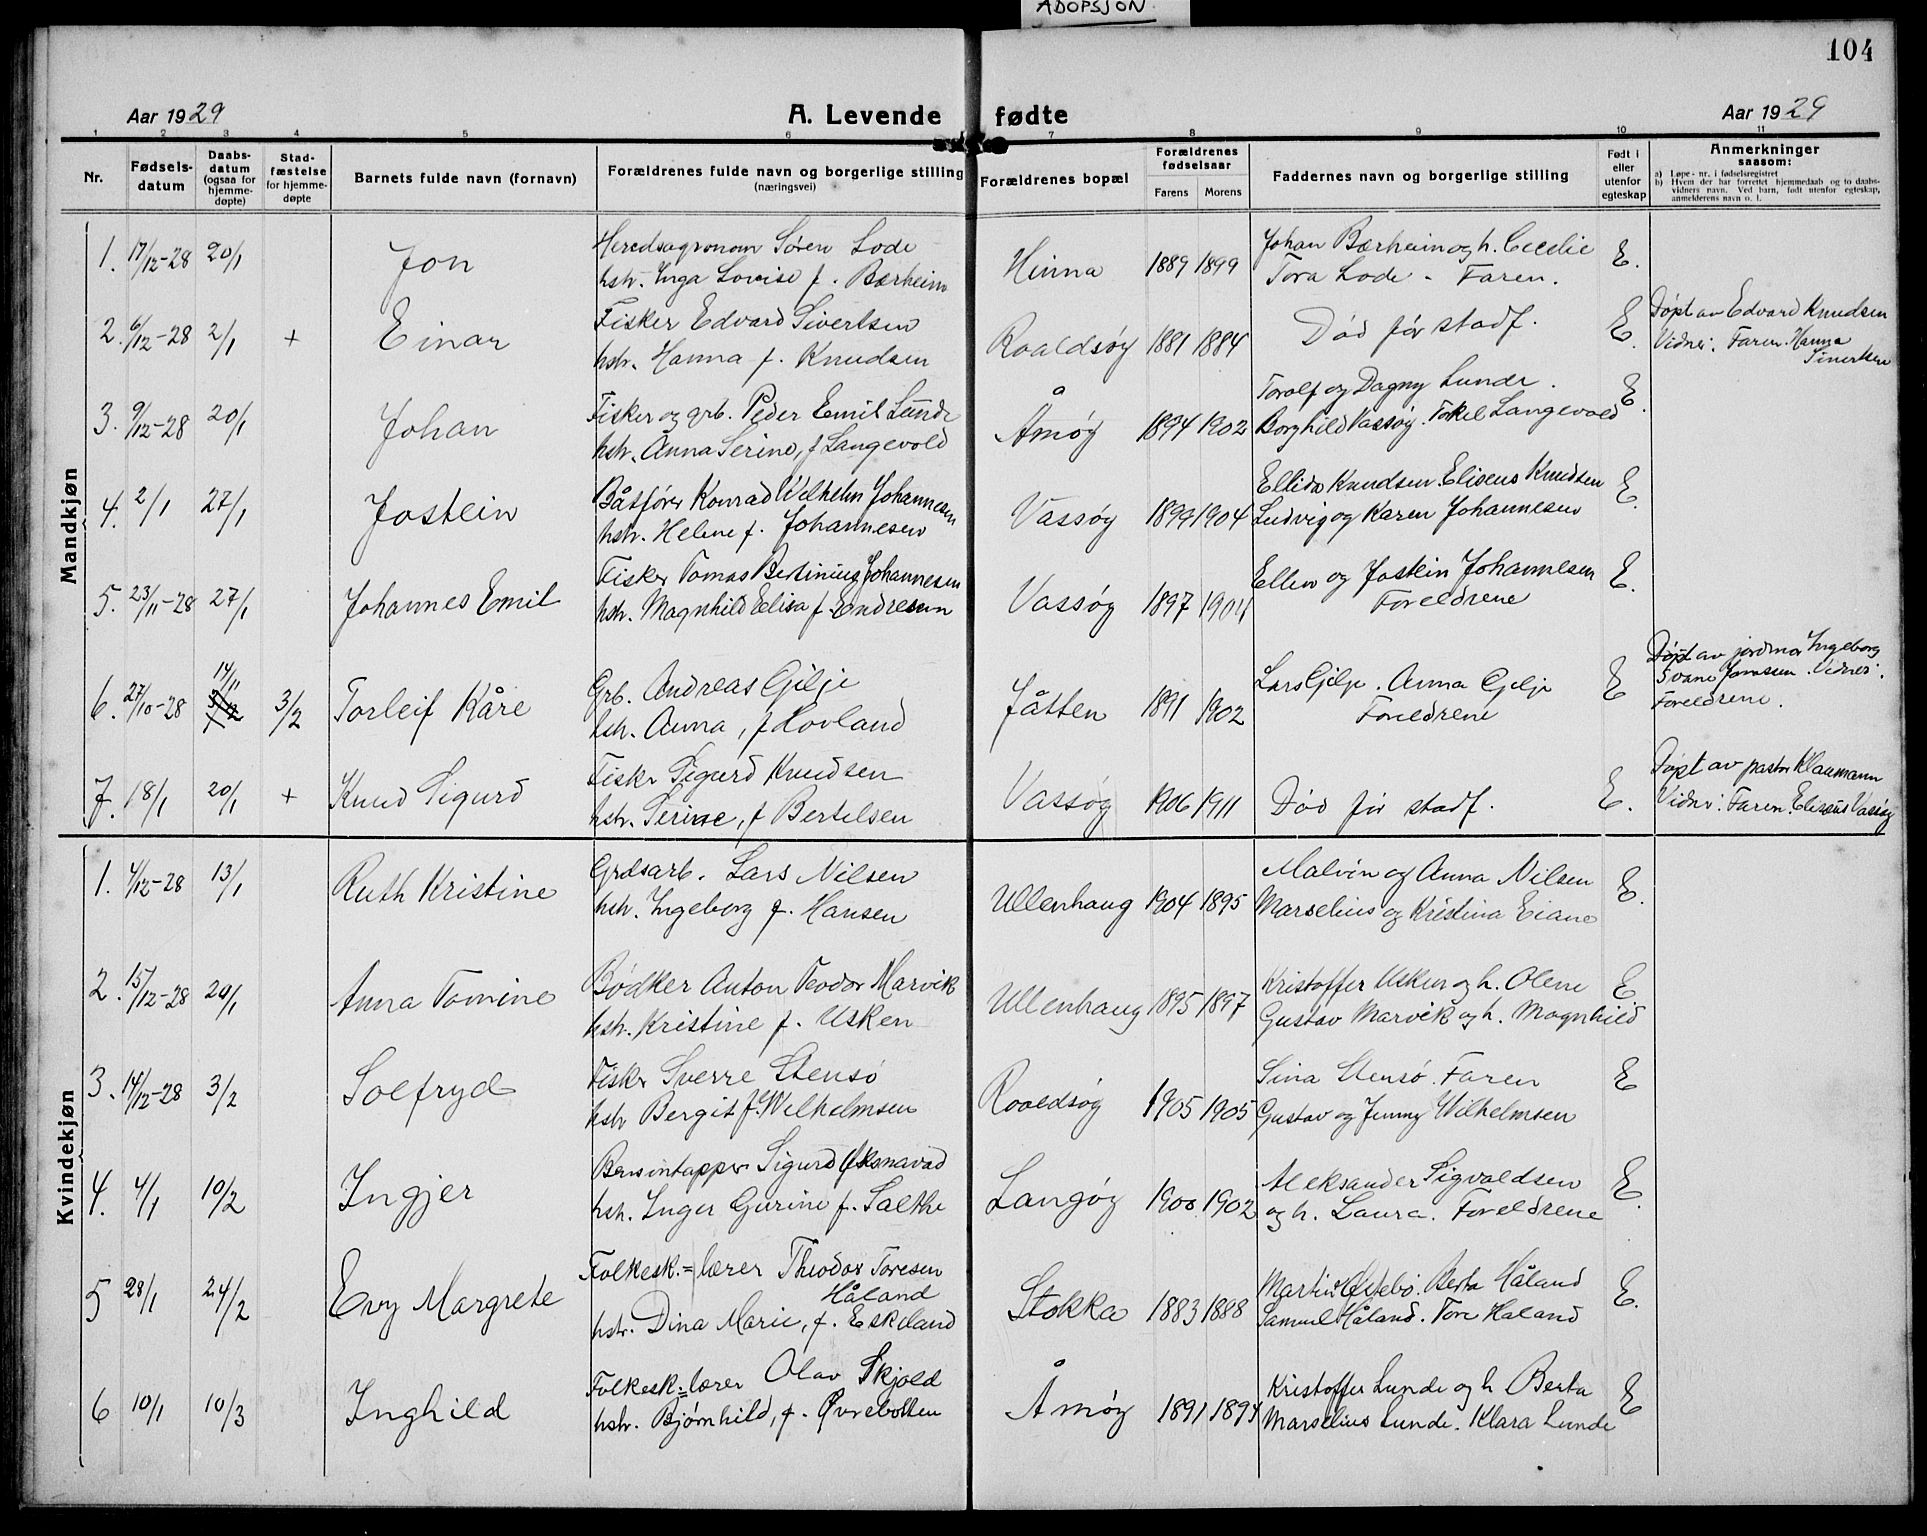 ADOPSJON
104
Aar 1929
A. Levende fødte
Aar 1929
1 2 3 4 5 6 7 8 9 10 11
Nr.
Fødsels-
datum
Daabs-
datum
(ogsaa for
hjemme-
døpte)
Stad-
fæstelse
for hjemme-
døpte
Barnets fulde navn (fornavn)
Forældrenes fulde navn og borgerlige stilling
(næringsvei)
Forældrenes bopæl
Forældrenes
fødselsaar
Farens Morens
Faddernes navn og borgerlige stilling
Født i
eller
utenfor
egteskap
Anmerkninger
saasom:
a) Løpe-nr. i fødselsregistret
b) Hvem der har forrettet hjemmedaab og to daabs-
vidners navn. Ved barn, født utenfor egteskap,
anmelderens navn o. l.
Mandkjøn
1. 17/12-28 20/1 Jon
Heredsagronom Søren Lode
hstr. Inga Lovise f. Bærheim
Hinna 1889 1899
Johan Bærheim og h. Cecilie
Tora Lode - Faren.
E.
2. 6/12-28 2/1 + Einar
Fisker Edvard Sivertsen
hstr. Hanna f. Knudsen
Roaldsøy 1881 1884
Død før stadf.
E.
Døpt av Edvard Knudsen
Vidner: Faren. Hanna
Sivertsen
3. 9/12-28 20/1 Johan
Fisker og grb. Peder Emil Lunde
hstr. Anna Serine, f Langevold
Åmøy 1894 1902
Torolf og Dagny Lunde.
Borghild Vassøy. Tokel Langevold
E.
4. 2/1 27/1 Jostein
Båtfører Konrad Vilhelm Johannesen
hstr. Helene f. Johannesen
Vassøy 1899 1904
Ellida Knudsen. Eliseus Knudsen
Ludvig og Karen Johannesen
E.
5. 23/11-28 27/1 Johannes Emil
Fisker Tomas Bertinius Johannesen
hstr. Magnhild Elisa f Endresen
Vassøy 1897 1904
Ellen og Jostein Johannesen
Foreldrene
E.
6. 27/10-28 14/11 3/2 Torleif Kåre
Grb. Andreas Gilje
hstr. Anna, f Hovland
Jåtten 1891 1902
Lars Gilje. Anna Gilje
Foreldrene
E
Døpt av jordmor Ingeborg
Svane Jonassen. Vidner:
Foreldrene.
7. 18/1 20/1 + Knud Sigurd
Fisker Sigurd Knudsen
hstr. Serine, f Bertelsen
Vassøy 1906 1911
Død før stadf.
E.
Døpt av pastor Klaumann
Vidner: Faren. Eliseus Vassøy
Kvindekjøn
1. 4/12-28 13/1 Ruth Kristine
Grdsarb. Lars Nilsen
hstr. Ingeborg f. Hansen
Ullenhaug 1904 1895
Malvin og Anna Nilsen
Marselius og Kristina Eiane
E.
2. 15/12-28 20/1 Anna Tomine
Bødker Anton Teodor Marvik
hstr. Kristine f. Usken
Ullenhaug 1895 1897
Kristoffer Usken og h. Olene
Gustav Marvik og h. Magnhild
E
3. 14/12-28 3/2 Solfryd
Fisker Sverre Stensø
hstr Bergit f. Wilhelmsen
Roaldsøy 1905 1905
Sina Stensø. Faren
Gustav og Jenny Wilhelmsen
E
4. 4/1 10/2 Ingjer
Bensintapper Sigurd Øksnavad
hstr. Inger Gurine f. Salthe
Langøy 1900 1902
Aleksander Sigvaldsen
og h. Laura. Foreldrene
E.
5 28/1 24/2 Evy Margrete
Folkesk.=lærer Theodor Toresen
Håland
hstr. Dina Marie, f. Eskeland
Stokka 1883 1888
Martin Østebø. Berta Håland
Samuel Håland. Tore Haland
E.
6 10/1 10/3 Inghild
Folkesk.=lærer Olav Skjold
hstr. Bjørnhild, f. Øvrebotten
Åmøy 1891 1894
Kristoffer Lunde og h Berta
Marselius Lunde. Klara Lunde
E